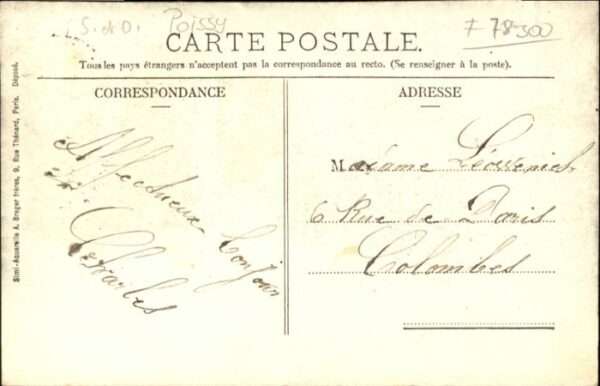 S. et O. Poissy
F 78-300
CARTE POSTALE.
Tous les pays étrangers n'acceptent pas la correspondance au recto. (Se renseigner à la poste).
CORRESPONDANCE
Affectueux
Bonjour
Charles
ADRESSE
Madame
6 Rue de Paris
Colombes
Simi-Aquarelle A. Breger frères, 9, Rue Thénard, Paris. Déposé.